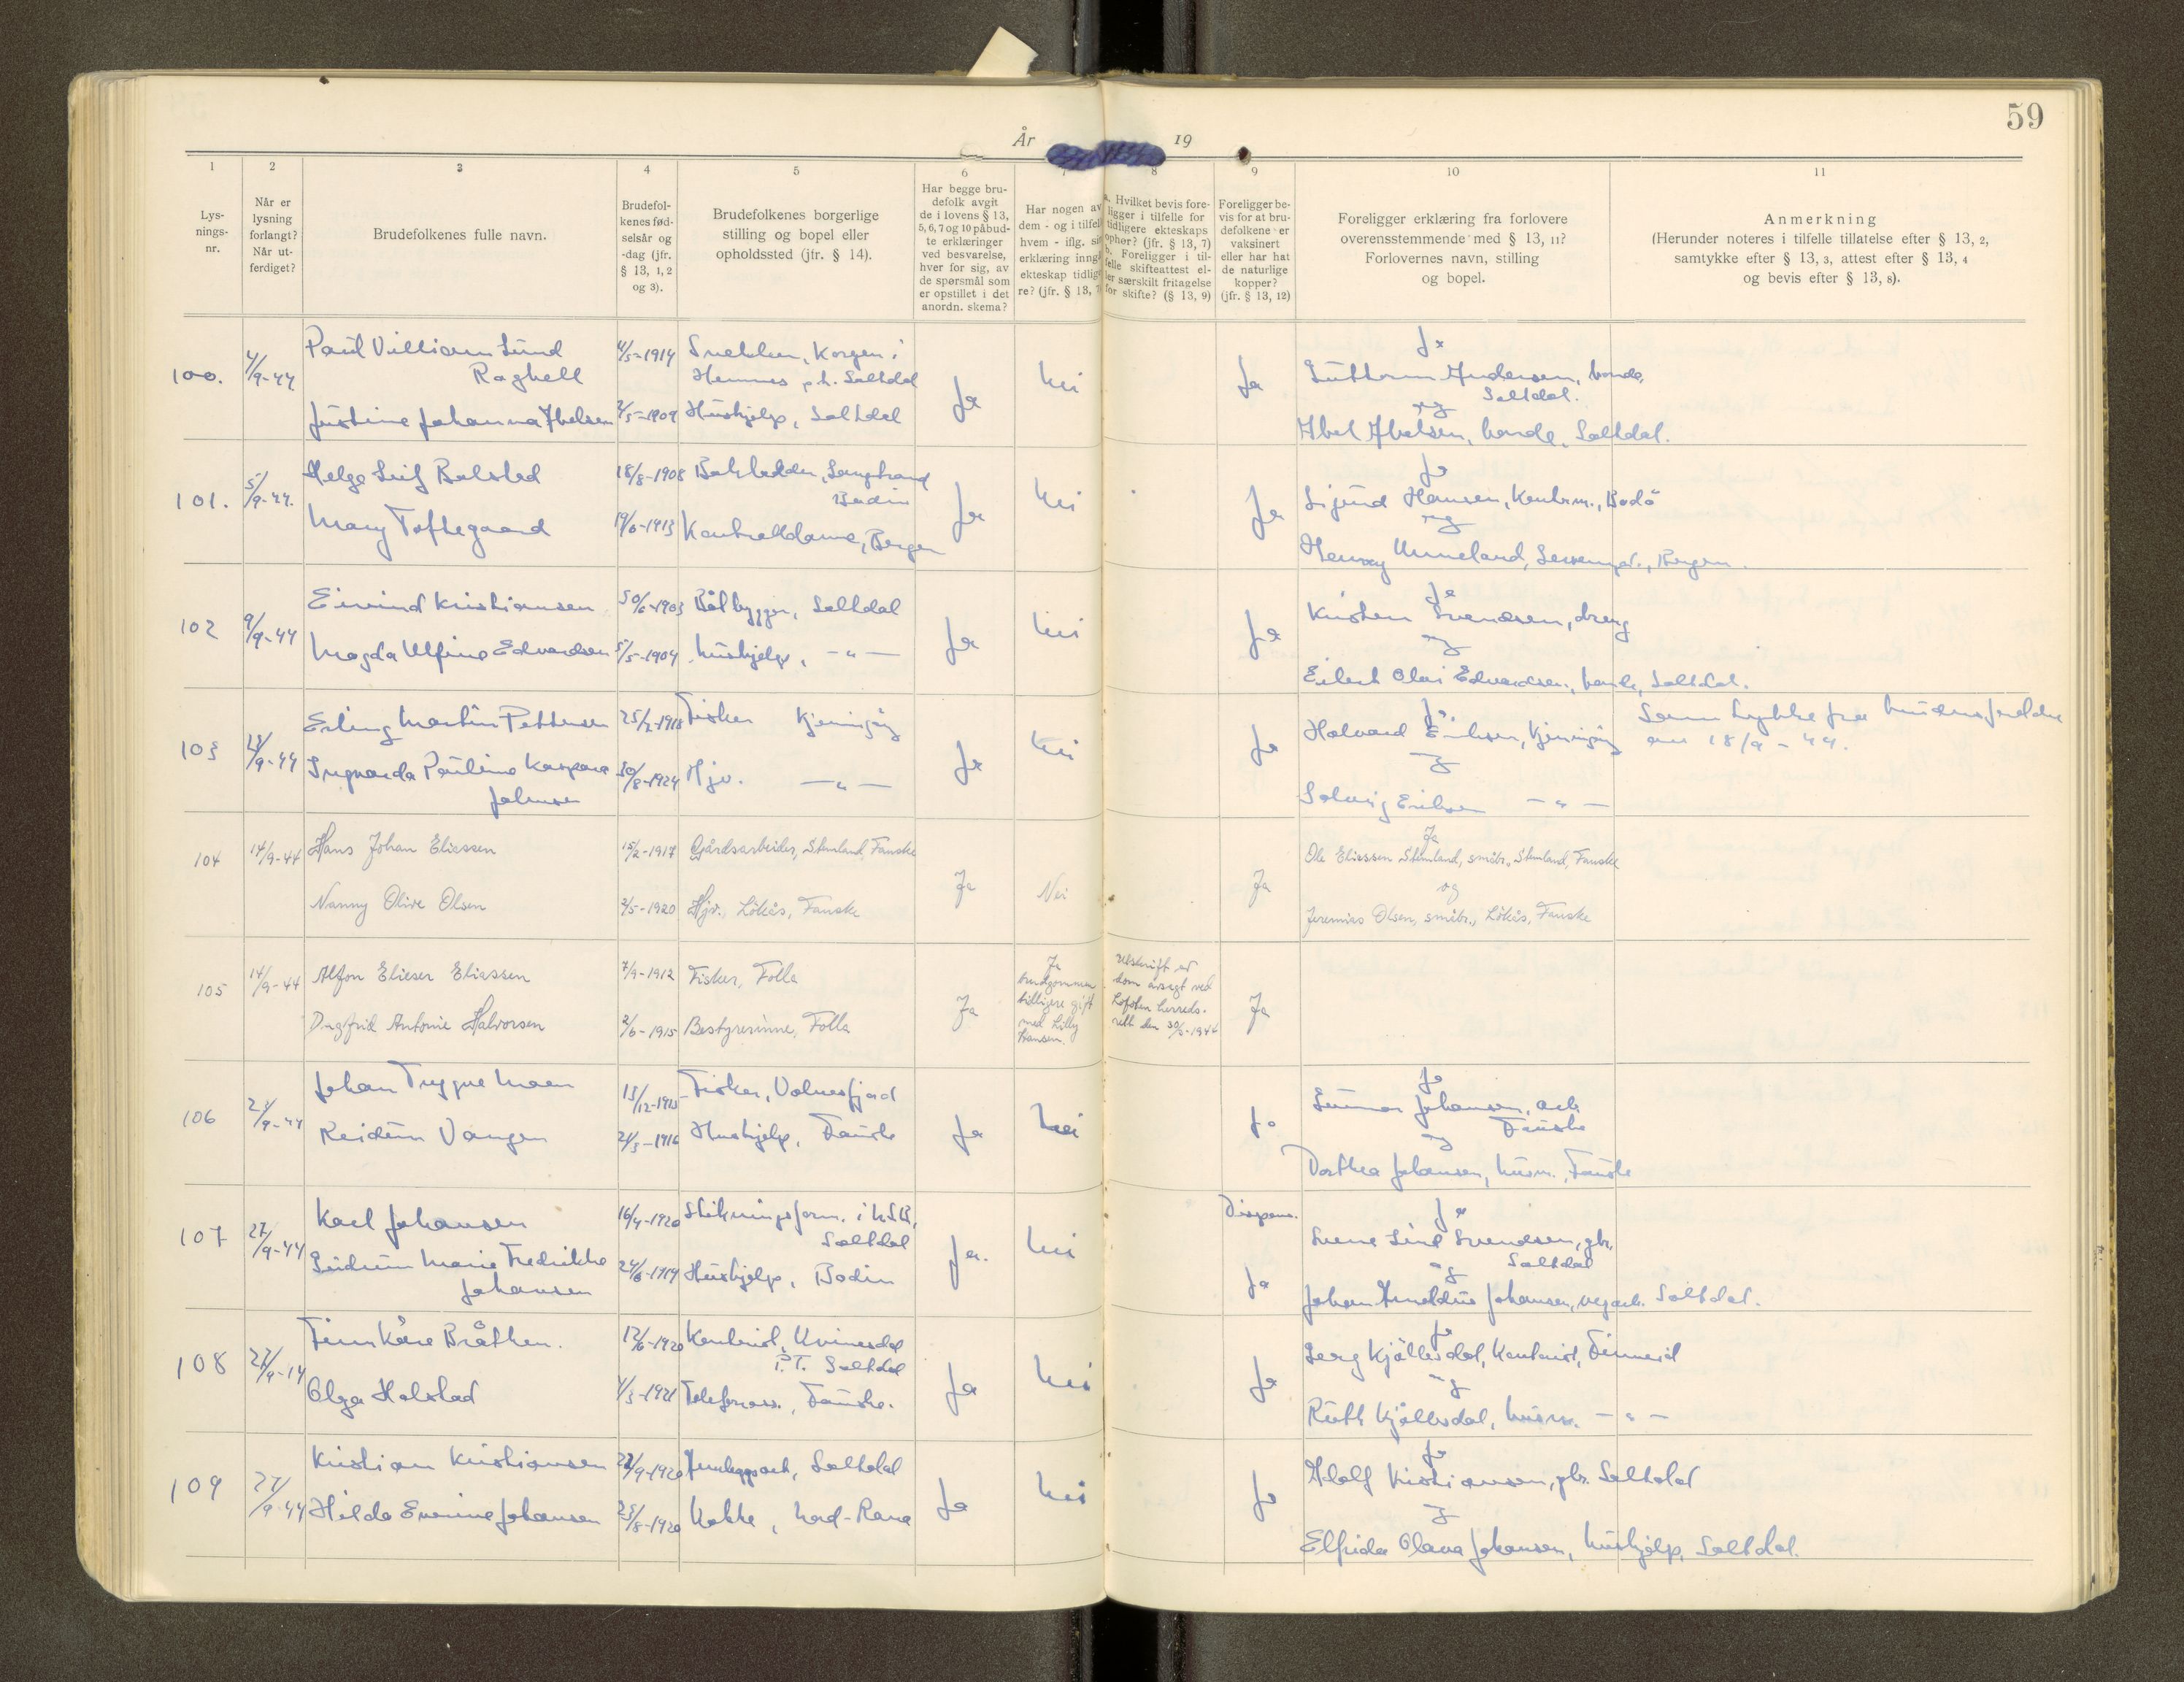 59
År 19
1 2 3 4 5 6 7 8 9 10 11
Lys-
nings-
nr.
Når er
lysning
forlangt?
Når ut-
ferdiget?
Brudefolkenes fulle navn.
Brudefol-
kenes fød-
selsår og
-dag (jfr.
§ 13, 1, 2
og 3).
Brudefolkenes borgerlige
stilling og bopel eller
opholdssted (jfr. § 14).
Har begge bru-
defolk avgit
de i lovens § 13,
5, 6, 7 og 10 påbud-
te erklæringer
ved besvarelse,
hver for sig, av
de spørsmål som
er opstillet i det
anordn. skema?
Har nogen av
dem - og i tilfel
hvem - iflg. si
erklæring inng
ekteskap tidlig
re? (jfr. § 13, 7
a. Hvilket bevis fore-
ligger i tilfelle for
tidligere ekteskaps
ophør? (jfr. § 13, 7)
b. Foreligger i til-
felle skifteattest el-
ler særskilt fritagelse
for skifte? (§ 13, 9)
Foreligger be-
vis for at bru-
defolkene er
vaksinert
eller har hat
de naturlige
kopper?
(jfr. § 13, 12)
Foreligger erklæring fra forlovere
overensstemmende med § 13, 11?
Forlovernes navn, stilling
og bopel.
Anmerkning
(Herunder noteres i tilfelle tillatelse efter § 13, 2,
samtykke efter § 13, 3, attest efter § 13, 4
og bevis efter § 13, 8).
100. 4/9-44 Paul Villiam Lund 4/5-1914 Snekker, Korgen i Ja Nei Ja Ja
Raghell Hemnes p.t. Saltdal Guttorm Andersen, bonde,
Saltdal.
og
Justine Johanna Abelsen 2/5-1909 Hushjelp, Saltdal Abel Abelsen, bonde, Saltdal.
101. 5/9-44. Helge Leif Balstad 18/8-1908 Ja Nei Ja Ja
Bodin Sigurd Hansen, Kontorm., Bodö
og
Mary Toftegaard 19/6-1913 Kontordame, Bergen Bergen.
102 9/9-44 Eivind Kristiansen 30/6-1903 Båtbygger, Saltdal Ja Nei Ja Ja
Kristen Svendsen, dreng
og
Magda Alfine Edvardsen 5/5-1904 hushjelp, -"- Eilert Olai Edvardsen, bonde, Saltdal.
103 Erling Martin Pettersen 25/2-1918 Fisker Kjerringöy Ja Nei Ja Ja.
Halvard Eriksen, Kjerringöy Samtykke fra brudens foreldre
av 18/9-44.
og
Ingvarda Pauline Kaspara 30/8-1924 Hjv. -"- Solveig Eriksen -"-
Johnsen
104 14/9-44 Hans Johan Eliassen 15/2-1917 Gårdsarbeider, Stemland, Fauske Ja Nei Ja Ja
Ole Eliassen Stemland, småbr., Stemland, Fauske
og
Nanny Olive Olsen 2/5-1920 Hjv., Lökås, Fauske Jeremias Olsen, småbr., Lökås, Fauske
105 14/9-44 Alfon Elieser Eliassen 7/9-1912 Fisker, Folla Ja
Ja
brudgommen
tidligere gift
med Lilly
Hansen.
utskrift av
dom avsagt ved
Lofoten herreds-
rett den 30/5-1944
Ja
Dagfrid Antonie Halvorsen 2/6-1915 Bestyrerinne, Folla
106 Johan Trygve Moen 13/12-1913 Fisker, Valnesfjord Ja Nei Ja Ja
Gunnar Johansen, arb.
Fauske
og
Reidun Vangen 21/3-1916 Hushjelp, Fauske Dorthea Johansen, husm., Fauske
107 27/9-44 Karl Johansen 16/4-1920 Stikningsform. i N.S.B., Ja. Nei Dispens. Ja
Saltdal Svend Svendsen, gbr.
Saltdal
og
Guidrun Marie Fredrikke 24/6-1914 Hushjelp, Bodin Ja Johan Arnoldus Johansen, vegarb. Saltdal.
Johansen
108 27/9-44 Finn Kåre Bråthen. 12/6-1920 Kontorist, Kvinesdal Ja Nei Ja Ja
P.T. Saltdal Kjöllesdal, Kontorist, Finneid
og
Olga Halstad 1/3-1921 Telefonass., Fauske. Ruth Kjöllesdal, husm. -"-
109 27/9-44 Kristian Kristiansen 22/9-1920 Jernleggsarb., Saltdal Ja Nei Ja Ja
Adolf Kristiansen, gbr. Saltdal
og
Hilda Evenine Johansen 23/8-1920 Kokke, Nord-Rana Elfrida Olava Johansen, hushjelp, Saltdal.